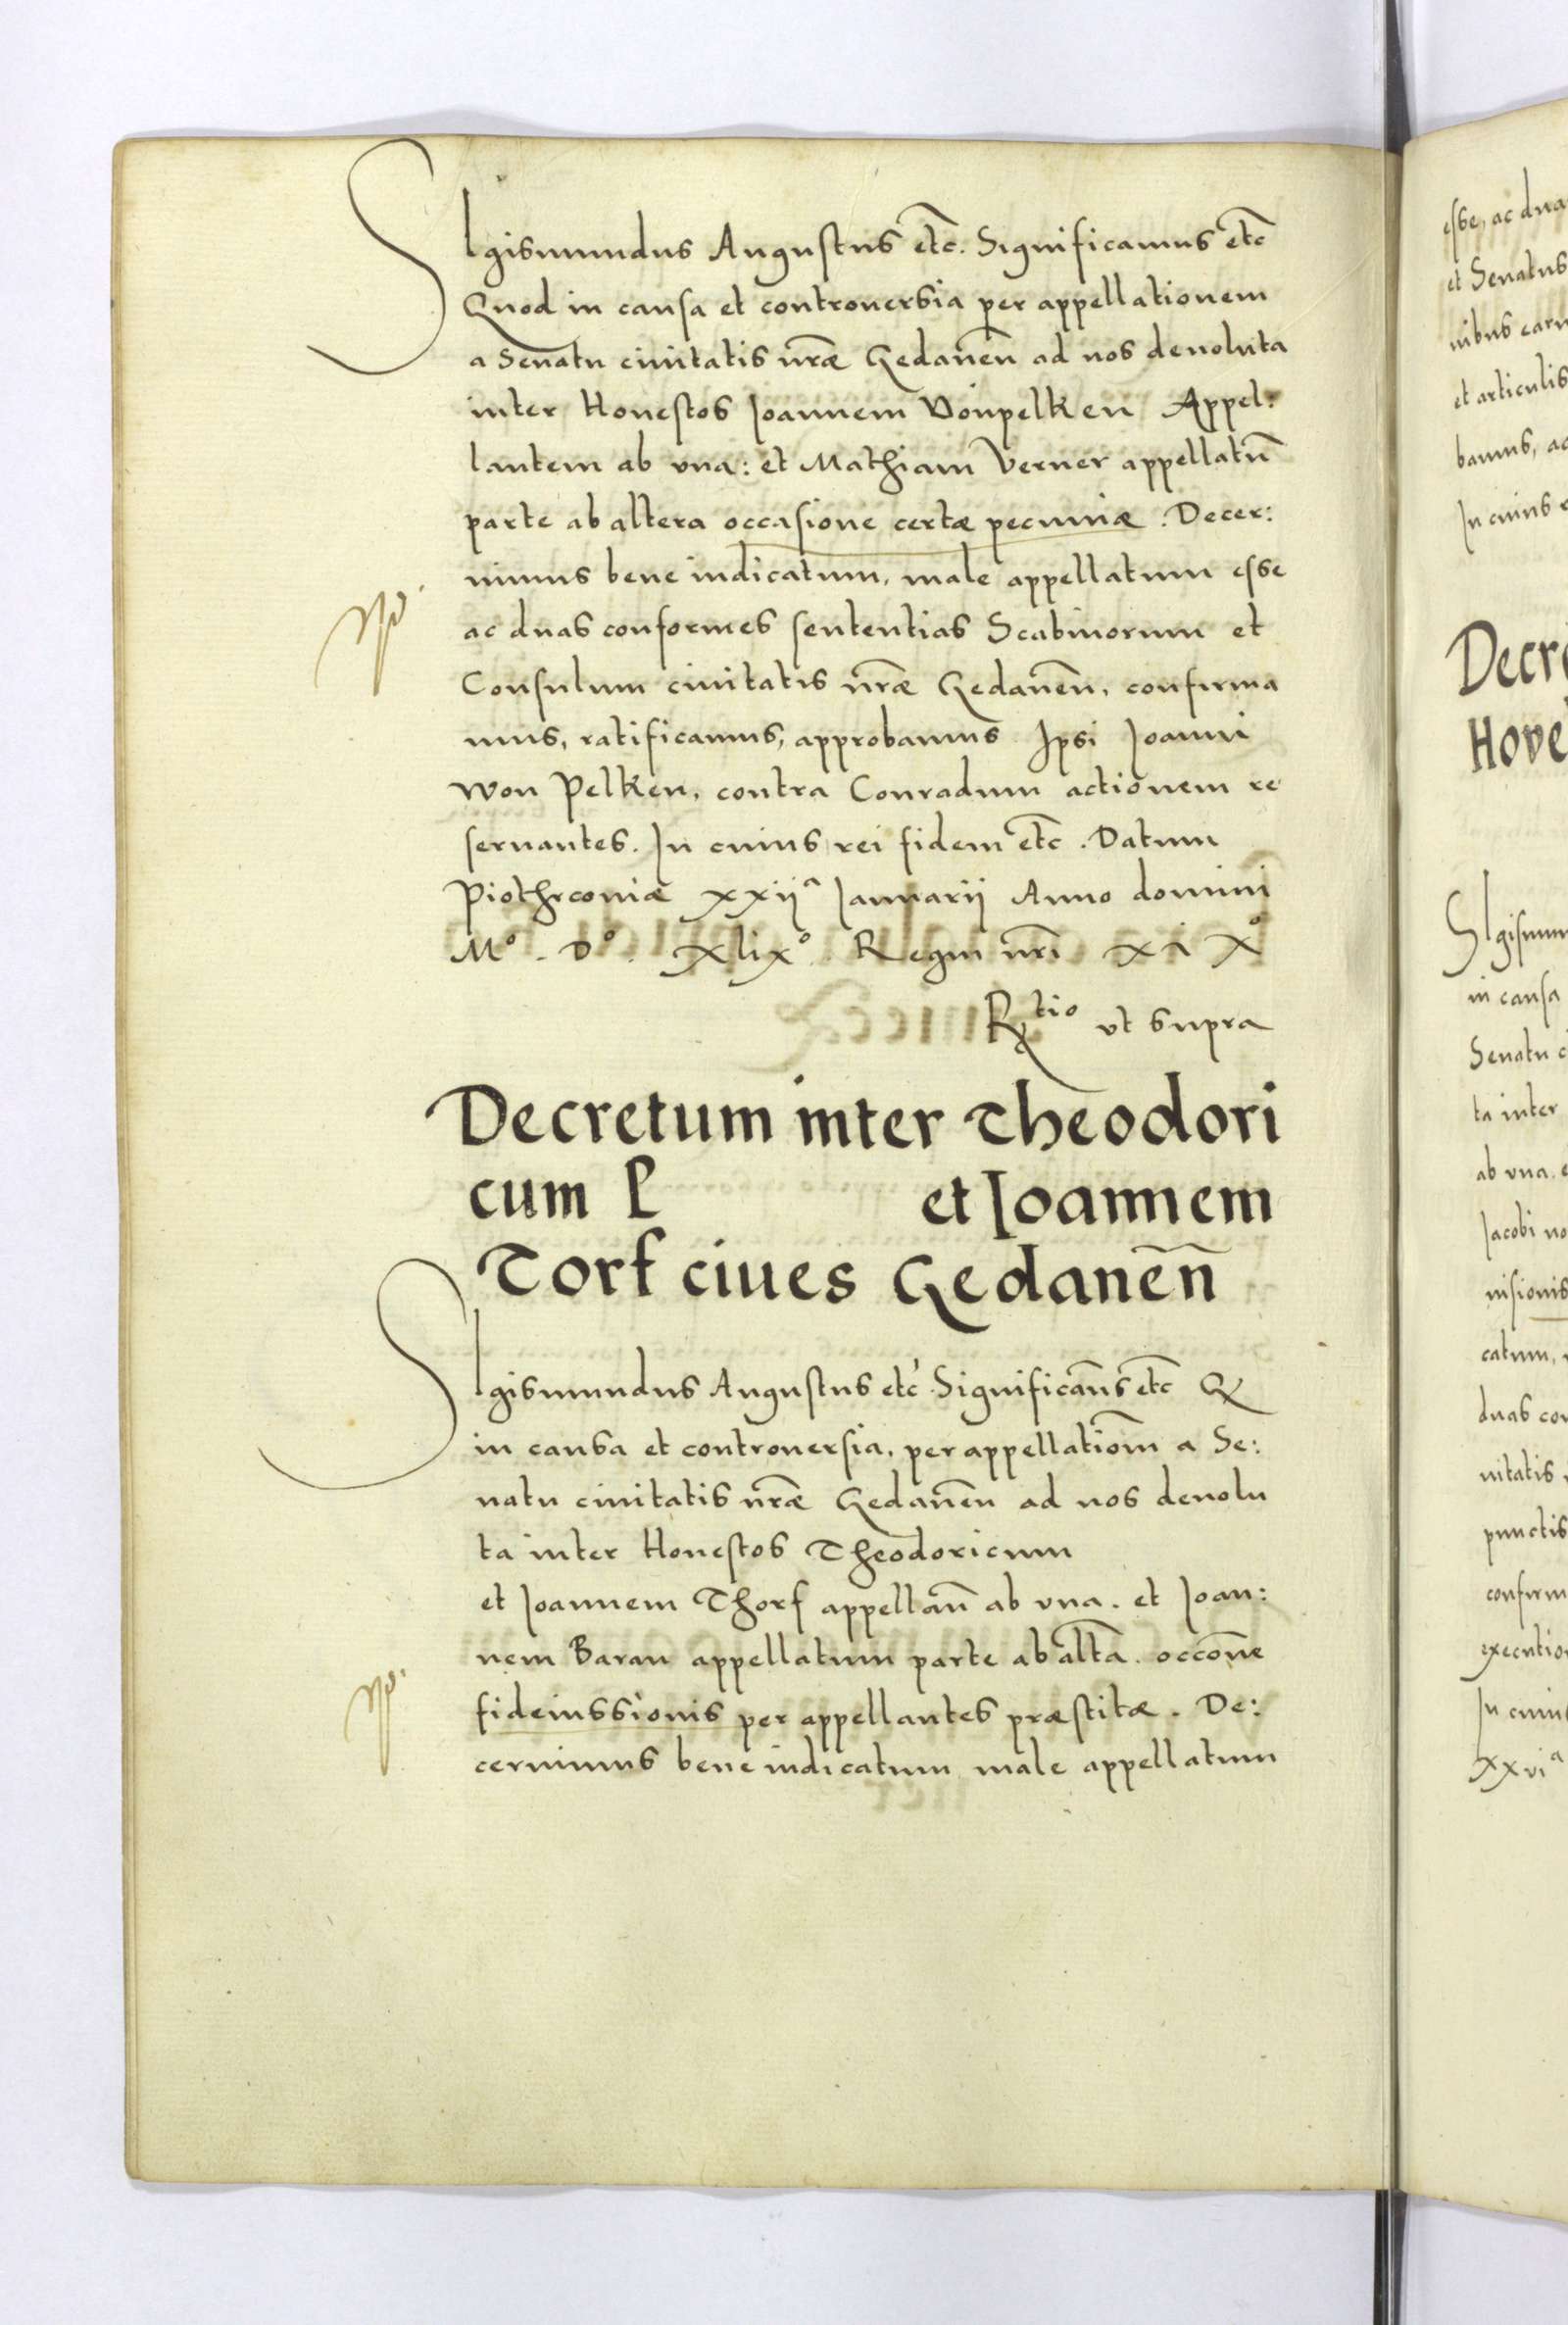 SIgismundus Augustus etc̄. Significamus etc̄
Quod in causa et controuersia per appellationem
a Senatu ciuitatis nr̄æ Gedanen̄ ad nos deuoluta
inter Honestos Ioannem Vonpelken Appel:
lantem ab vna: et Mathiam Verner appellatū
parte ab altera occasione certæ pecuniæ. Decer:
nimus bene iudicatum, male appellatum esse
ac duas conformes sententias Scabinorum et
Consulum ciuitatis nr̄æ Gedanen̄, confirma
mus, ratificamus, approbamus. Ipsi Ioanni
Won Pelken, contra Conradum actionem re
seruantes. In cuius rei fidem etc̄. Datum
Piothrconiæ xxijª Ianuarij Anno domini
Mº. Dº. xlixº. Regni nr̄i xixº
Rtio vt supra
Decretum inter Theodori
cum P et Ioannem
Torf ciues Gedanen̄
SIgismundus Augustus etc̄. Significam̄s etc̄ Q
in causa et controuersia, per appellatiōm a Se:
natu ciuitatis nr̄æ Gedanen̄ ad nos deuolu
ta inter Honestos Theodoricum
et Ioannem Thorf appellan̄ ab vna. et Ioan:
nem Baran appellatum parte ab altā. occōne
fideiussionis per appellantes præstitæ. De:
cernimus bene iudicatum male appellatum
esse, ac dua
et Senatus
nibus earu
et articulis
bamus, ac
In cuius
Decr
Hove
SIgismun
in causa
Senatu c
ta inter
ab vna.
Iacobi no
nisionis
catum,
duas con
uitatis
punctis
confirm
executio
In cuius
xxviª